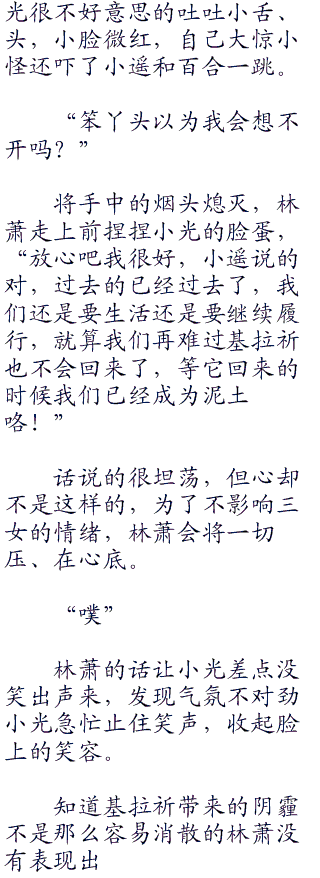 光很不好意思的吐吐小舌、
头，小脸微红，自己大惊小
怪还吓了小遥和百合一跳。
“笨丫头以为我会想不
开吗？”
将手中的烟头熄灭，林
萧走上前捏捏小光的脸蛋，
“放心吧我很好，小遥说的
对，过去的已经过去了，我
们还是要生活还是要继续履
行，就算我们再难过基拉祈
也不会回来了，等它回来的
时候我们已经成为泥土
咯！”
话说的很坦荡，但心却
不是这样的，为了不影响三
女的情绪，林萧会将一切
压、在心底。
“噗”
林萧的话让小光差点没
笑出声来，发现气氛不对劲
小光急忙止住笑声，收起脸
上的笑容。
知道基拉祈带来的阴霾
不是那么容易消散的林萧没
有表现出